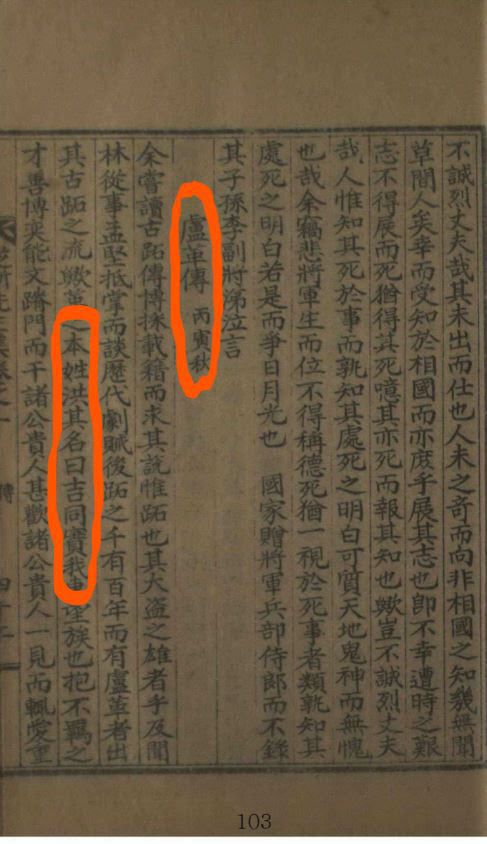 不誠烈丈夫哉其未出而仕也人未之奇而向非相國之知幾無聞
草間人矣幸而受知於相國而亦庶乎展其志也卽不幸遭時之艱
志不得展而死猶得其死噫其亦死而報其知也歟豈不誠烈丈夫
哉人惟知其死於事而孰知其處死之明白可質天地鬼神而無愧
也哉余竊悲將軍生而位不得稱德死猶一視於死事者類孰知其
處死之明白若是而爭日月光也 國家贈將軍兵部侍郎而不錄
其子孫李副將涕泣言
盧革傳 丙寅秋
余嘗讀古跖傳博採載籍而求其說惟跖也其大盜之雄者乎及聞
林從事孟堅抵掌而談歷代劇賊後跖之千有百年而有盧革者出
其古跖之流歟革之本姓洪其名曰吉同實我望族也抱不羈之
才善博奕能文躋門而干諸公貴人甚歡諸公貴人一見而輒愛重
103